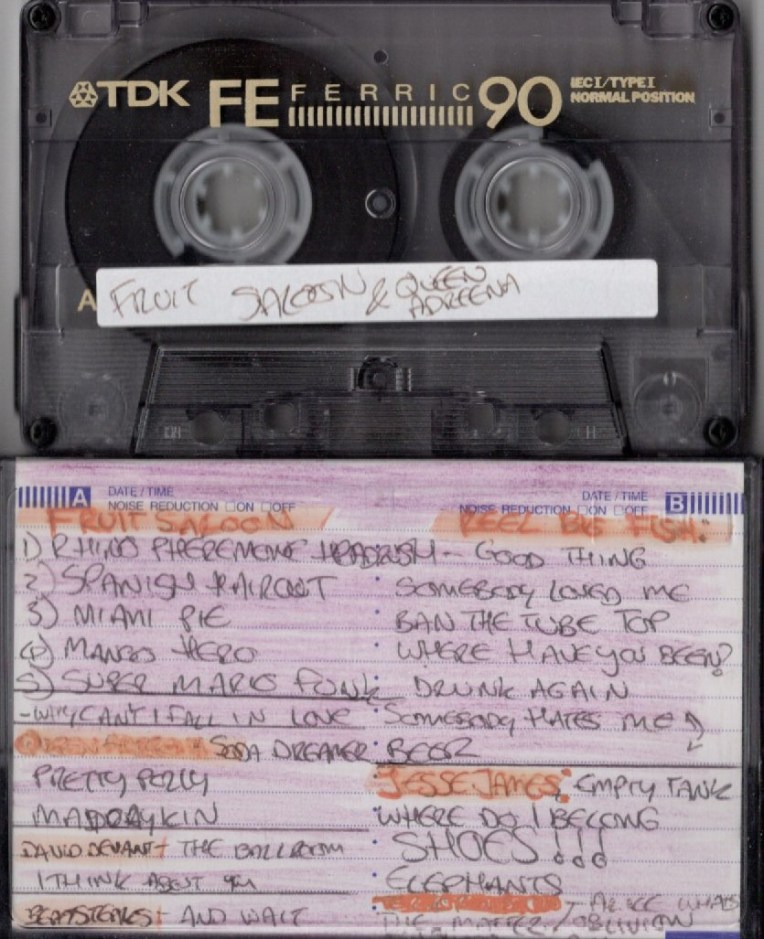 TDK FE FERRIC 90 IEC I/TYPE I NORMAL POSITION
A FRUIT SALOON & QUEEN ADREENA
A DATE / TIME
NOISE REDUCTION □ON □OFF
DATE / TIME B
NOISE REDUCTION □ON □OFF
FRUIT SALOON
1) RHINO PHEREMONE HEADRUSH
2) SPANISH HAIRCUT
3) MIAMI PIE
4) MANGO HERO
5) SUPER MARIO FUNK
- WHY CAN'T I FALL IN LOVE
SODA DREAMER
PRETTY POLLY
MADRAYKIN
DAVID DEVANT + THE BALLROOM
I THINK ABOUT YOU
BEATSTEAKS + AND WAIT
REEL BIG FISH:
- GOOD THING
SOMEBODY LOVED ME
BAN THE TUBE TOP
WHERE HAVE YOU BEEN?
DRUNK AGAIN
SOMEBODY HATES ME
BEER
JESSE JAMES: EMPTY TANK
WHERE DO I BELONG
SHOES!!!
ELEPHANTS
- ALICE WHATS
THE MATTER / OBLIVION